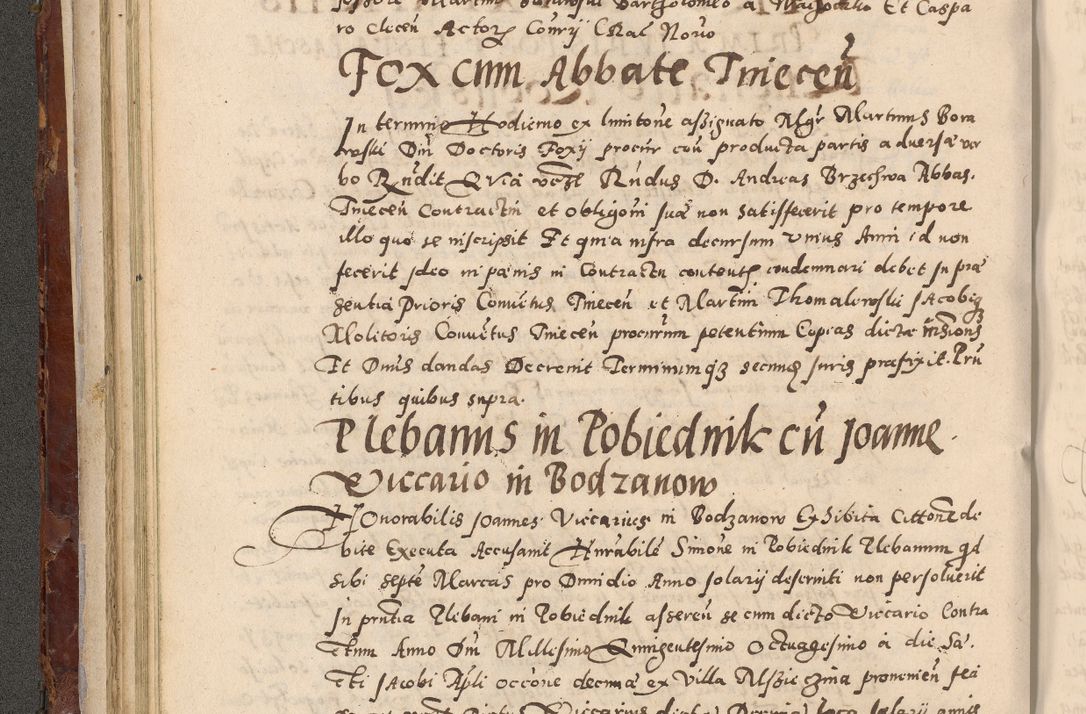 ro Clecen Actorz Conrÿ Cszal Novo
Fox cum Abbate Tinecen̄
In termino Hodierno ex limitone assignato Mgr Martinus Bora
wski Dni Doctoris Foxij procur con producta partis adversæ ver
bo Rn̄dit Qvia Rn̄dus D. Andreas Brzechwa Abbas
Tinecen̄ Contractui et obligoni suæ non satisfecerit pro tempore
illo quo se inscripsit Et quia infra decursum unius Anni id non
fecerit ideo in pænis in Contractu contentis condemnari debet In præ
sentia Prioris Conventus Tinecen̄ et Martini Thomalowski Jacobiq3
Molitoris Conventus Tinecen̄ procurum petentium Copias dictæ
Et Dnis dandas Decrevit Terminumq3 secundz Juris præfixit Prn̄
tibus quibus supra.
Plebanus in Pobiednik cū Joanne
Viccario in Bodzanow
Honorabilis Joannes Viccarius in Bodzanow Exhibita Cittone de
bite Executa Accusavit Hnrabile Simone in Pobiednik Plebanum qd
sibi septe Marcas pro Dimidio Anno solarij deserviti non persolverit
In prn̄tia Plebani in Pobiednik asseren̄ se cum dicto Viccario Contra
ctum Anno Dni Millesimo Quingentesimo Octuagesimo a die Sa.
cti Jacobi Apli occone decimæ ex Villa provenien̄